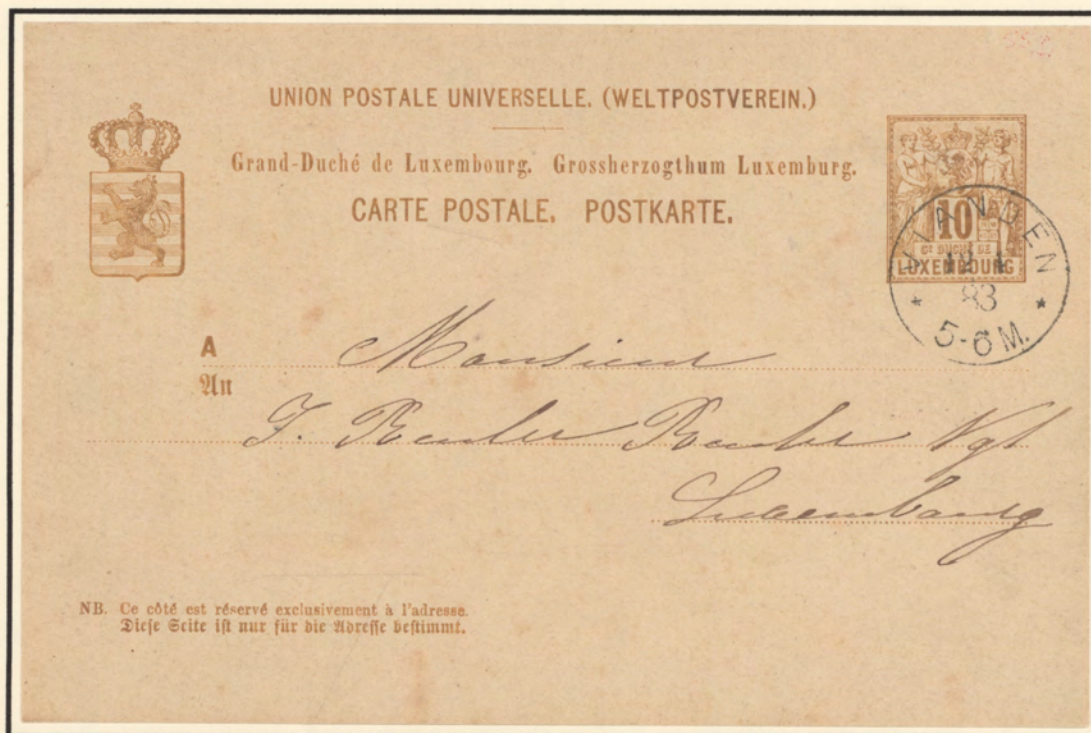 UNION POSTALE UNIVERSELLE. (WELTPOSTVEREIN.)
Grand-Duché de Luxembourg. Grossherzogthum Luxemburg.
CARTE POSTALE. POSTKARTE.
10
Gd DUCHÉ DE
LUXEMBOURG
VIANDEN
83
5-6 M.
A Monsieur
An
Luxembourg
NB. Ce côté est réservé exclusivement à l'adresse.
Diese Seite ist nur für die Adresse bestimmt.